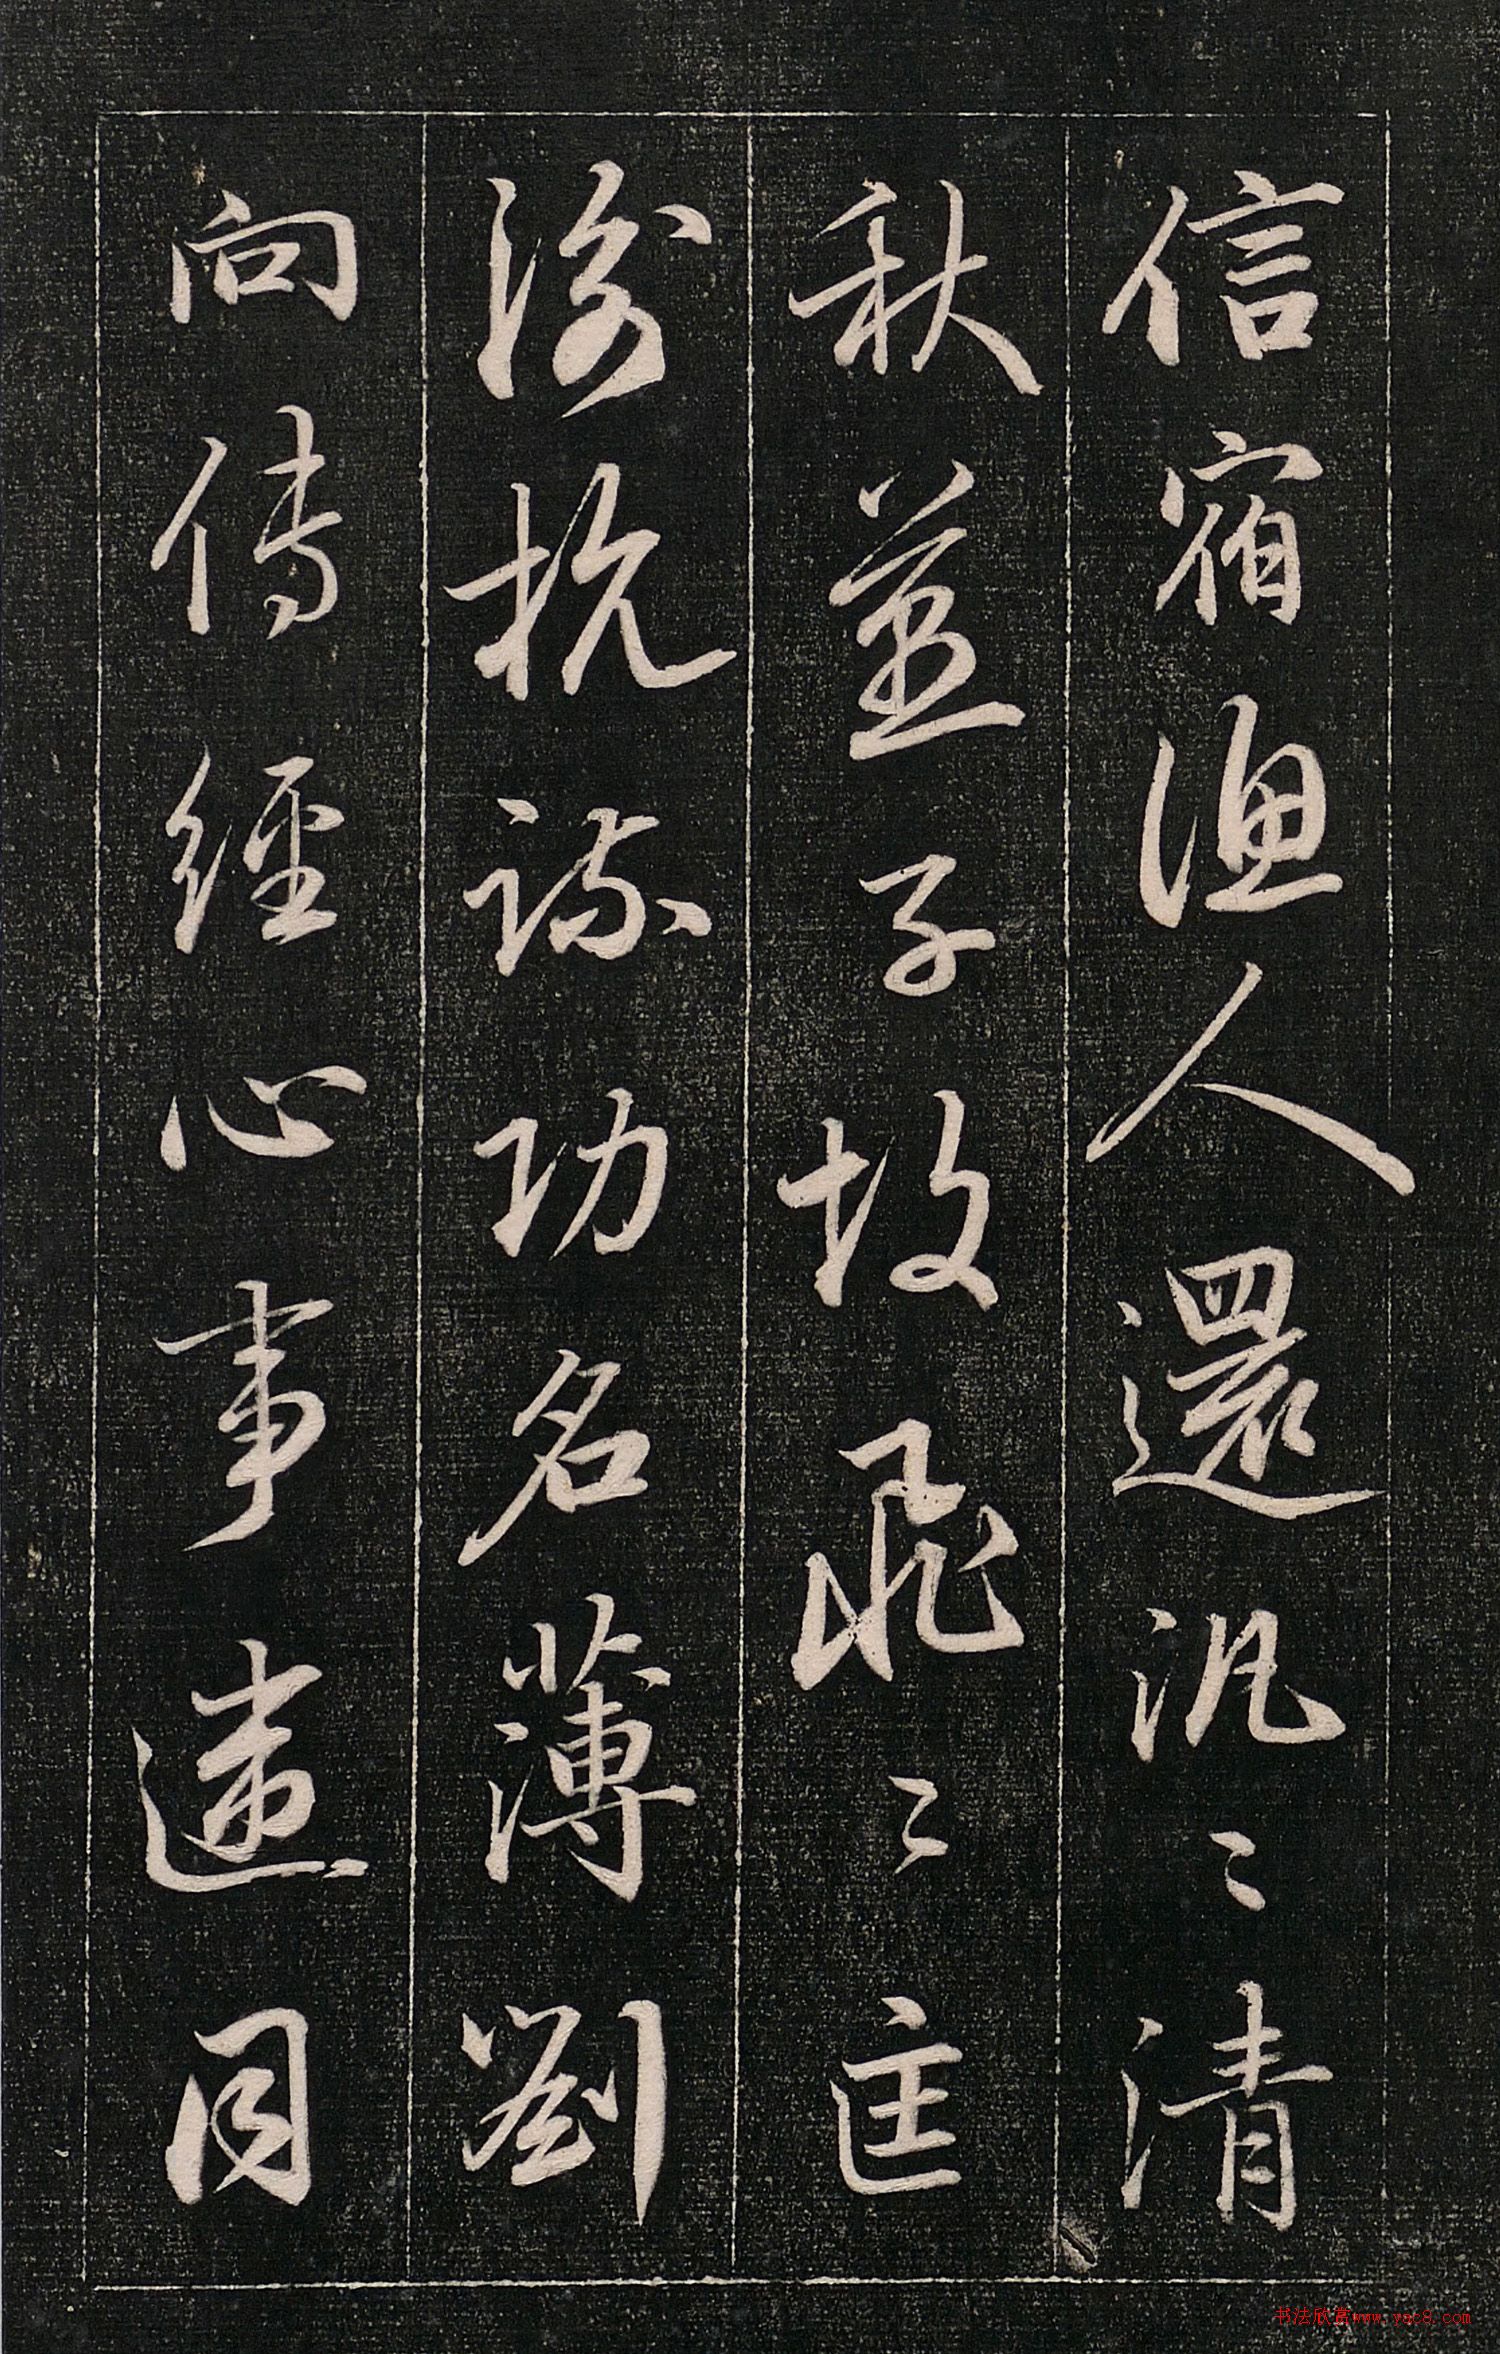 信宿漁人還汎〻清
秋燕子故飛〻匡
衡抗疏功名薄劉
向傳經心事違同
书法欣赏www.yac8.com